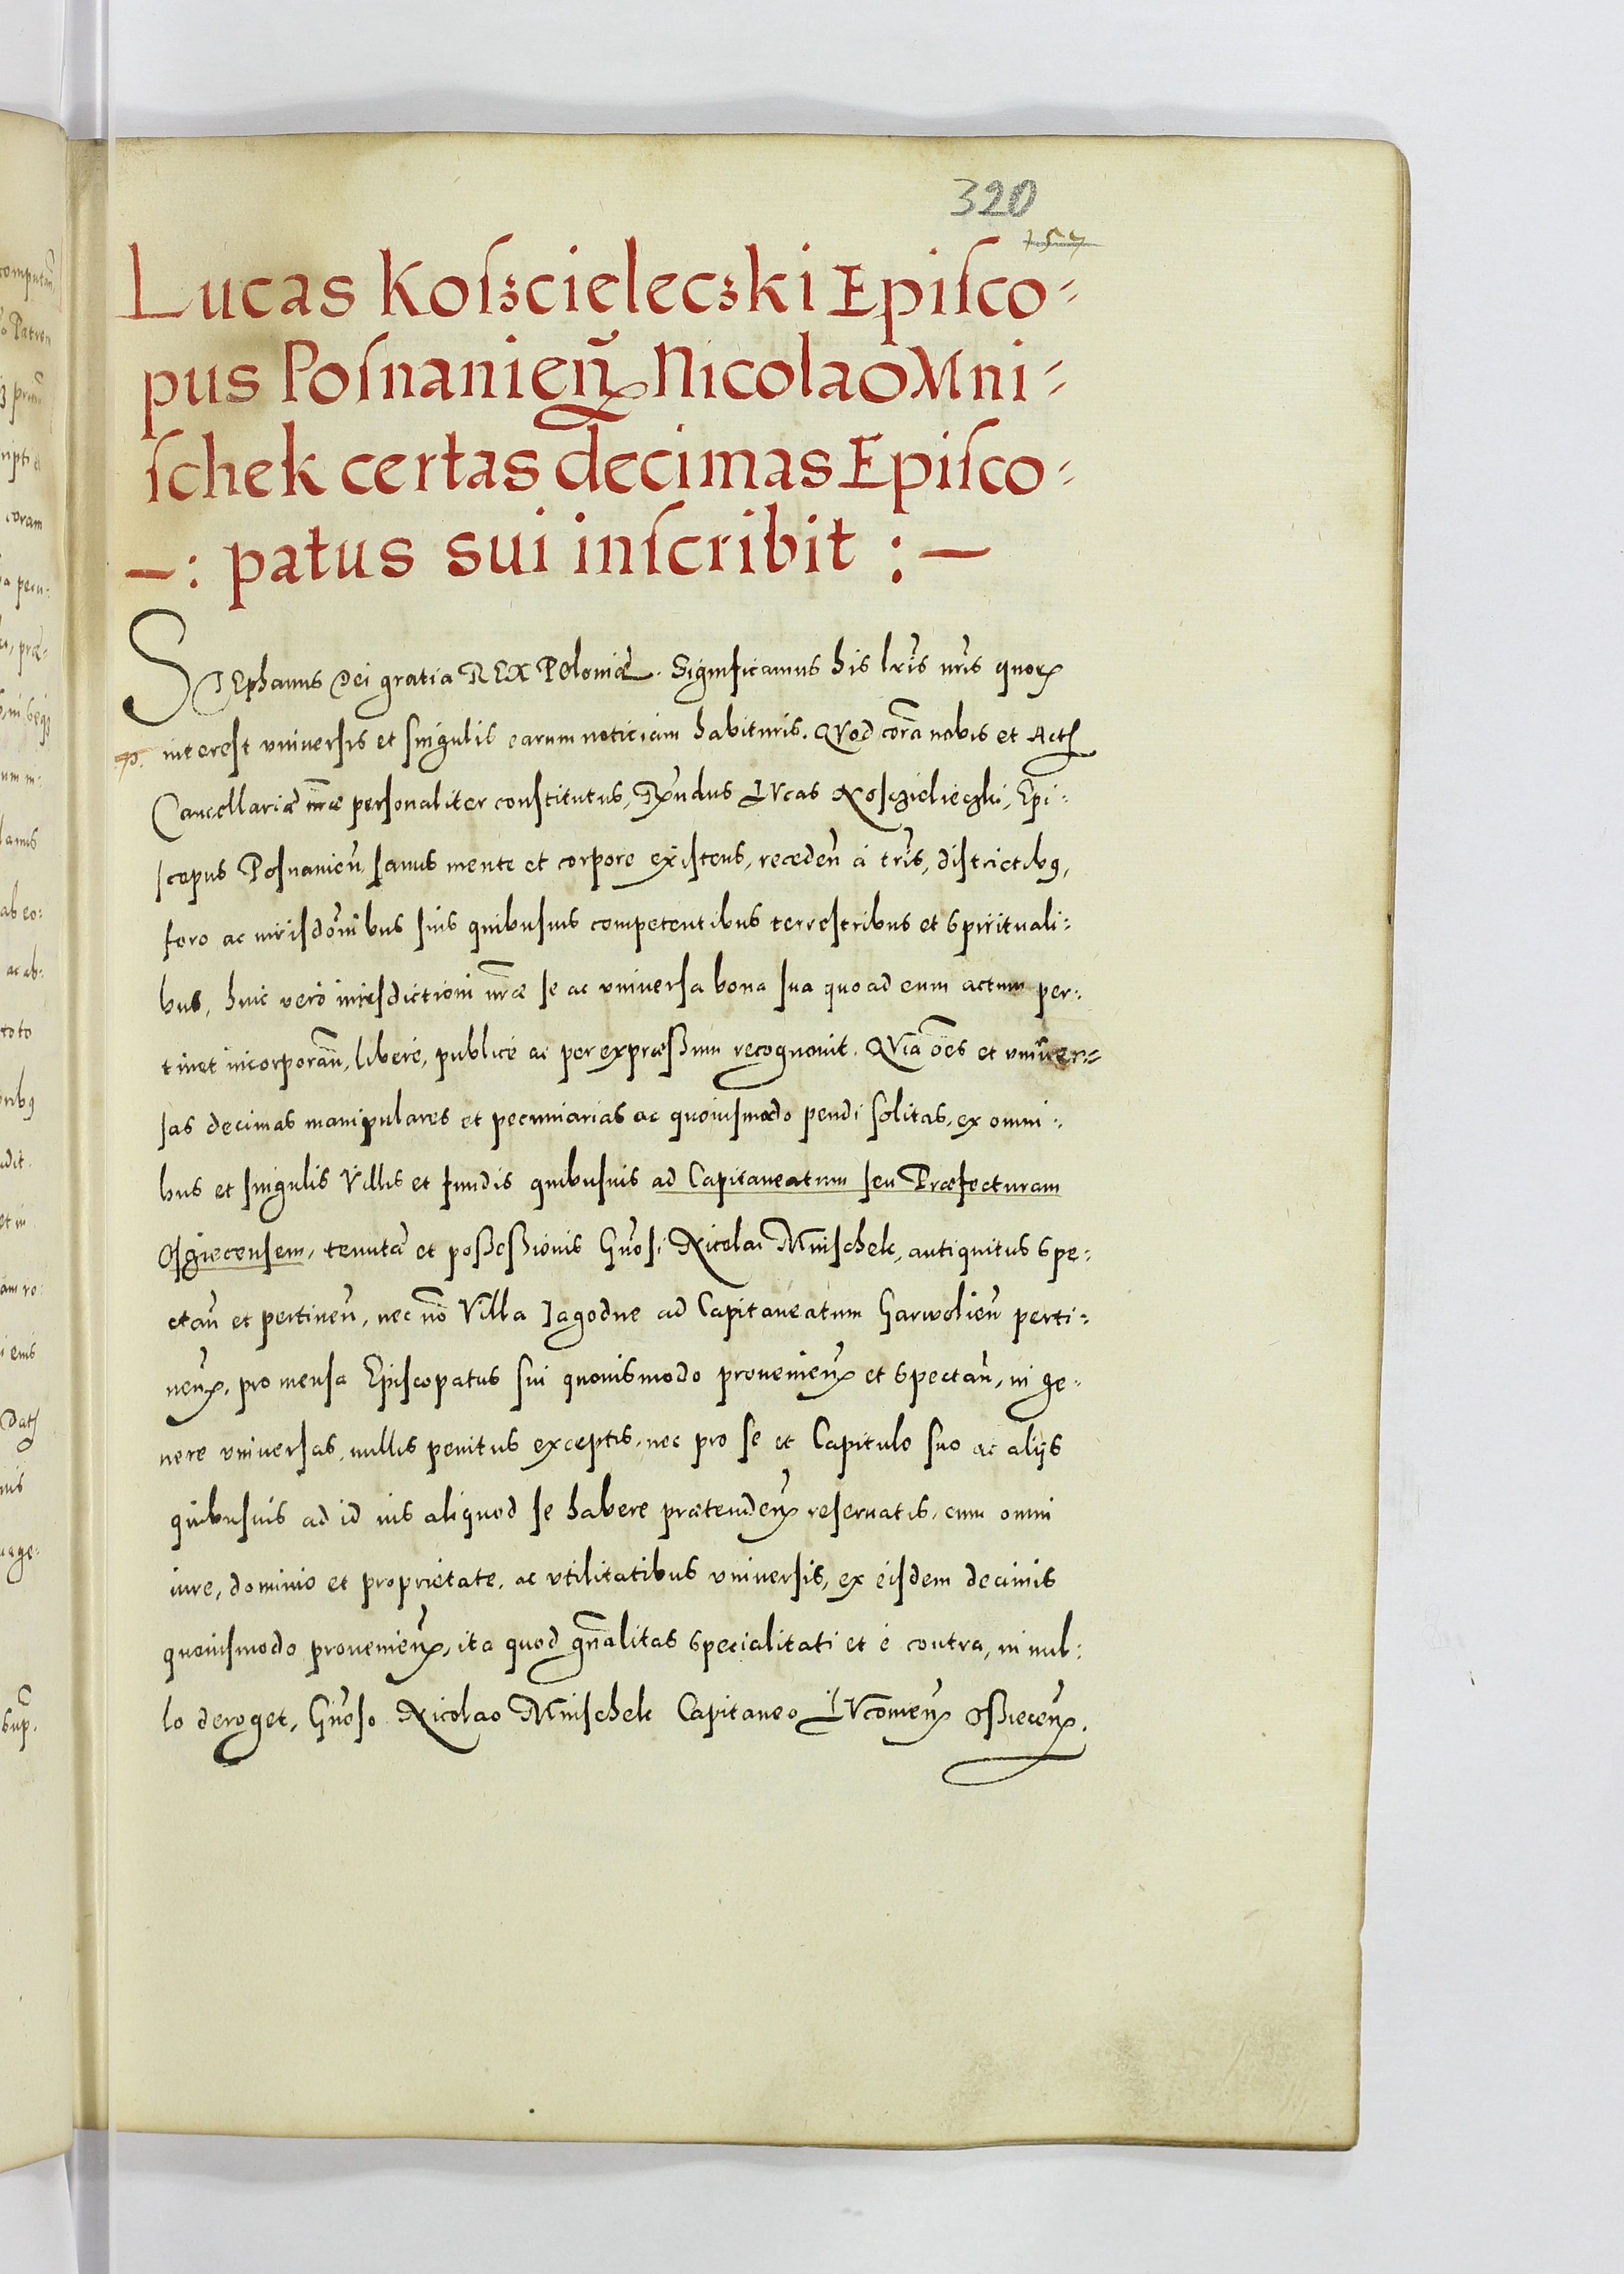 320
157
Lucas Koſzcieleczki Epiſco-
pus Poſnanieñ Nicolao Mni-
ſchek certas decimas Epiſco-
-: patus sui inſcribit :-
STEphanus Dei gratia REX POloniæ. Significamus his lr̃is nr̃is quorꝝ
interest vniuersis et singulis earum noticiam habituris. QVod corã nobis et Actis
Cancellariæ nr̃æ personaliter constitutus, Rñdus LVcas Koſczielieczki, Epi-
scopus Posnanieñ sanus mente et corpore existens, recedeñ à tr̃is, districtibꝰ,
foro ac iurisdõnibus suis quibusuis competentibus terrestribus et spirituali-
bus, huic verò iurisdictioni nr̃æ se ac vniuersa bona sua quoad eum actum per-
tinet incorporañ, liberè, publicè ac per expræssum recognouit. QVia oẽs et vniuer-
sas decimas manipulares et pecuniarias ac quouismodo pendi solitas, ex omni-
bus et singulis Villis et fundis quibusuis ad Capitaneatum seu Præfecturam
Osziecensem, tenutæ et possessionis Gñosi Nicolai Mnischek, antiquitus spe-
ctañ et pertineñ, nec nõ Villa Jagodne ad Capitaneatum Garwolieñ perti-
neñ, pro mensa Episcopatus sui quouismodo prouenieñ et spectañ, in ge-
nere vniuersas, nullis penitus exceptis, nec pro se et Capitulo suo ac alijs
quibusuis ad id ius aliquod se habere prætendeñ reseruatis, cum omni
iure, dominio et proprietate, ac vtilitatibus vniuersis, ex eisdem decimis
quouismodo prouenieñ, ita quod gñalitas specialitati et è contra, in nul-
lo deroget, Gñoso Nicolao Mnischek Capitaneo LVcouieñ Ossieceñ.